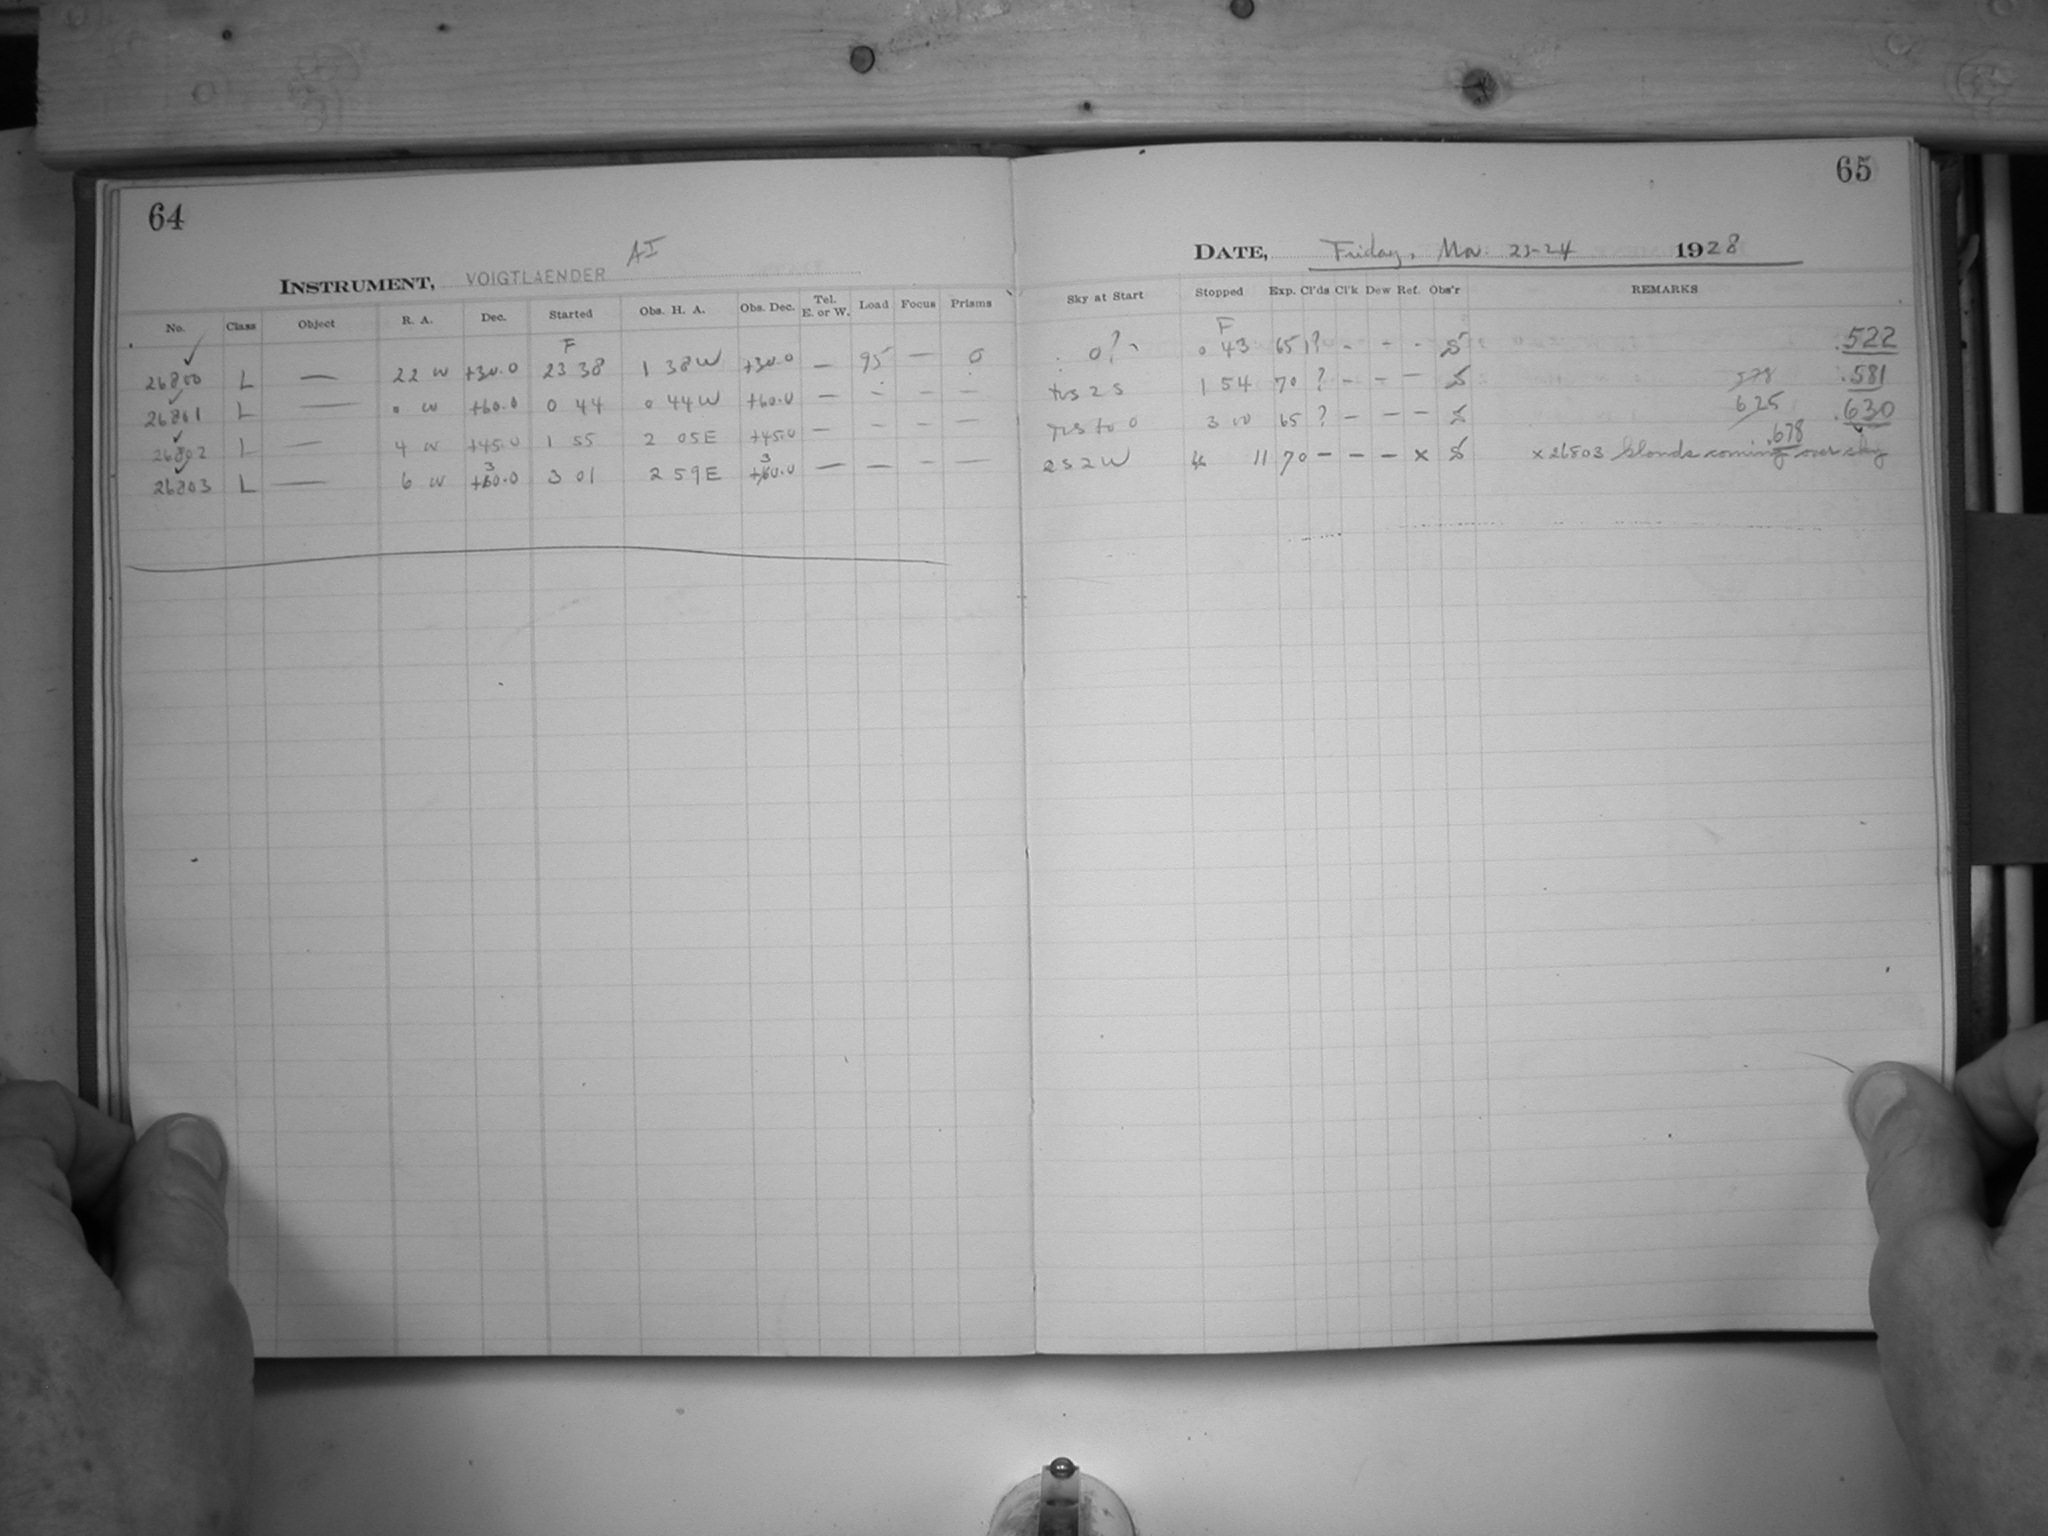 64
AI
INSTRUMENT, VOIGTLAENDER
No. Class Object R. A. Dec. Started Obs. H. A. Obs. Dec. Tel. E. or W. Load Focus Prisms
F
26800 L — 22 00 +30.0 23 38 1 38W +30.0 — 95 — 0
26801 L — 0 00 +60.0 0 44 0 44W +60.0 — — — —
26802 L — 4 00 +45.0 1 55 2 05E +45.0 — — — —
26803 L — 6 00 +30.0 3 01 2 59E +30.0 — — — —
65
DATE, Friday, Nov. 23-24 1928
Sky at Start Stopped Exp. Cl'ds Cl'k Dew Ref. Obs'r REMARKS
F
0? 0 43 65 ? - - - S .522
2 S 1 54 70 ? - - - S 578 .581
to 0 3 00 65 ? - - - S 625 .630
2 S 2 W 4 11 70 - - - x S .678
x 26803 Clouds coming over sky